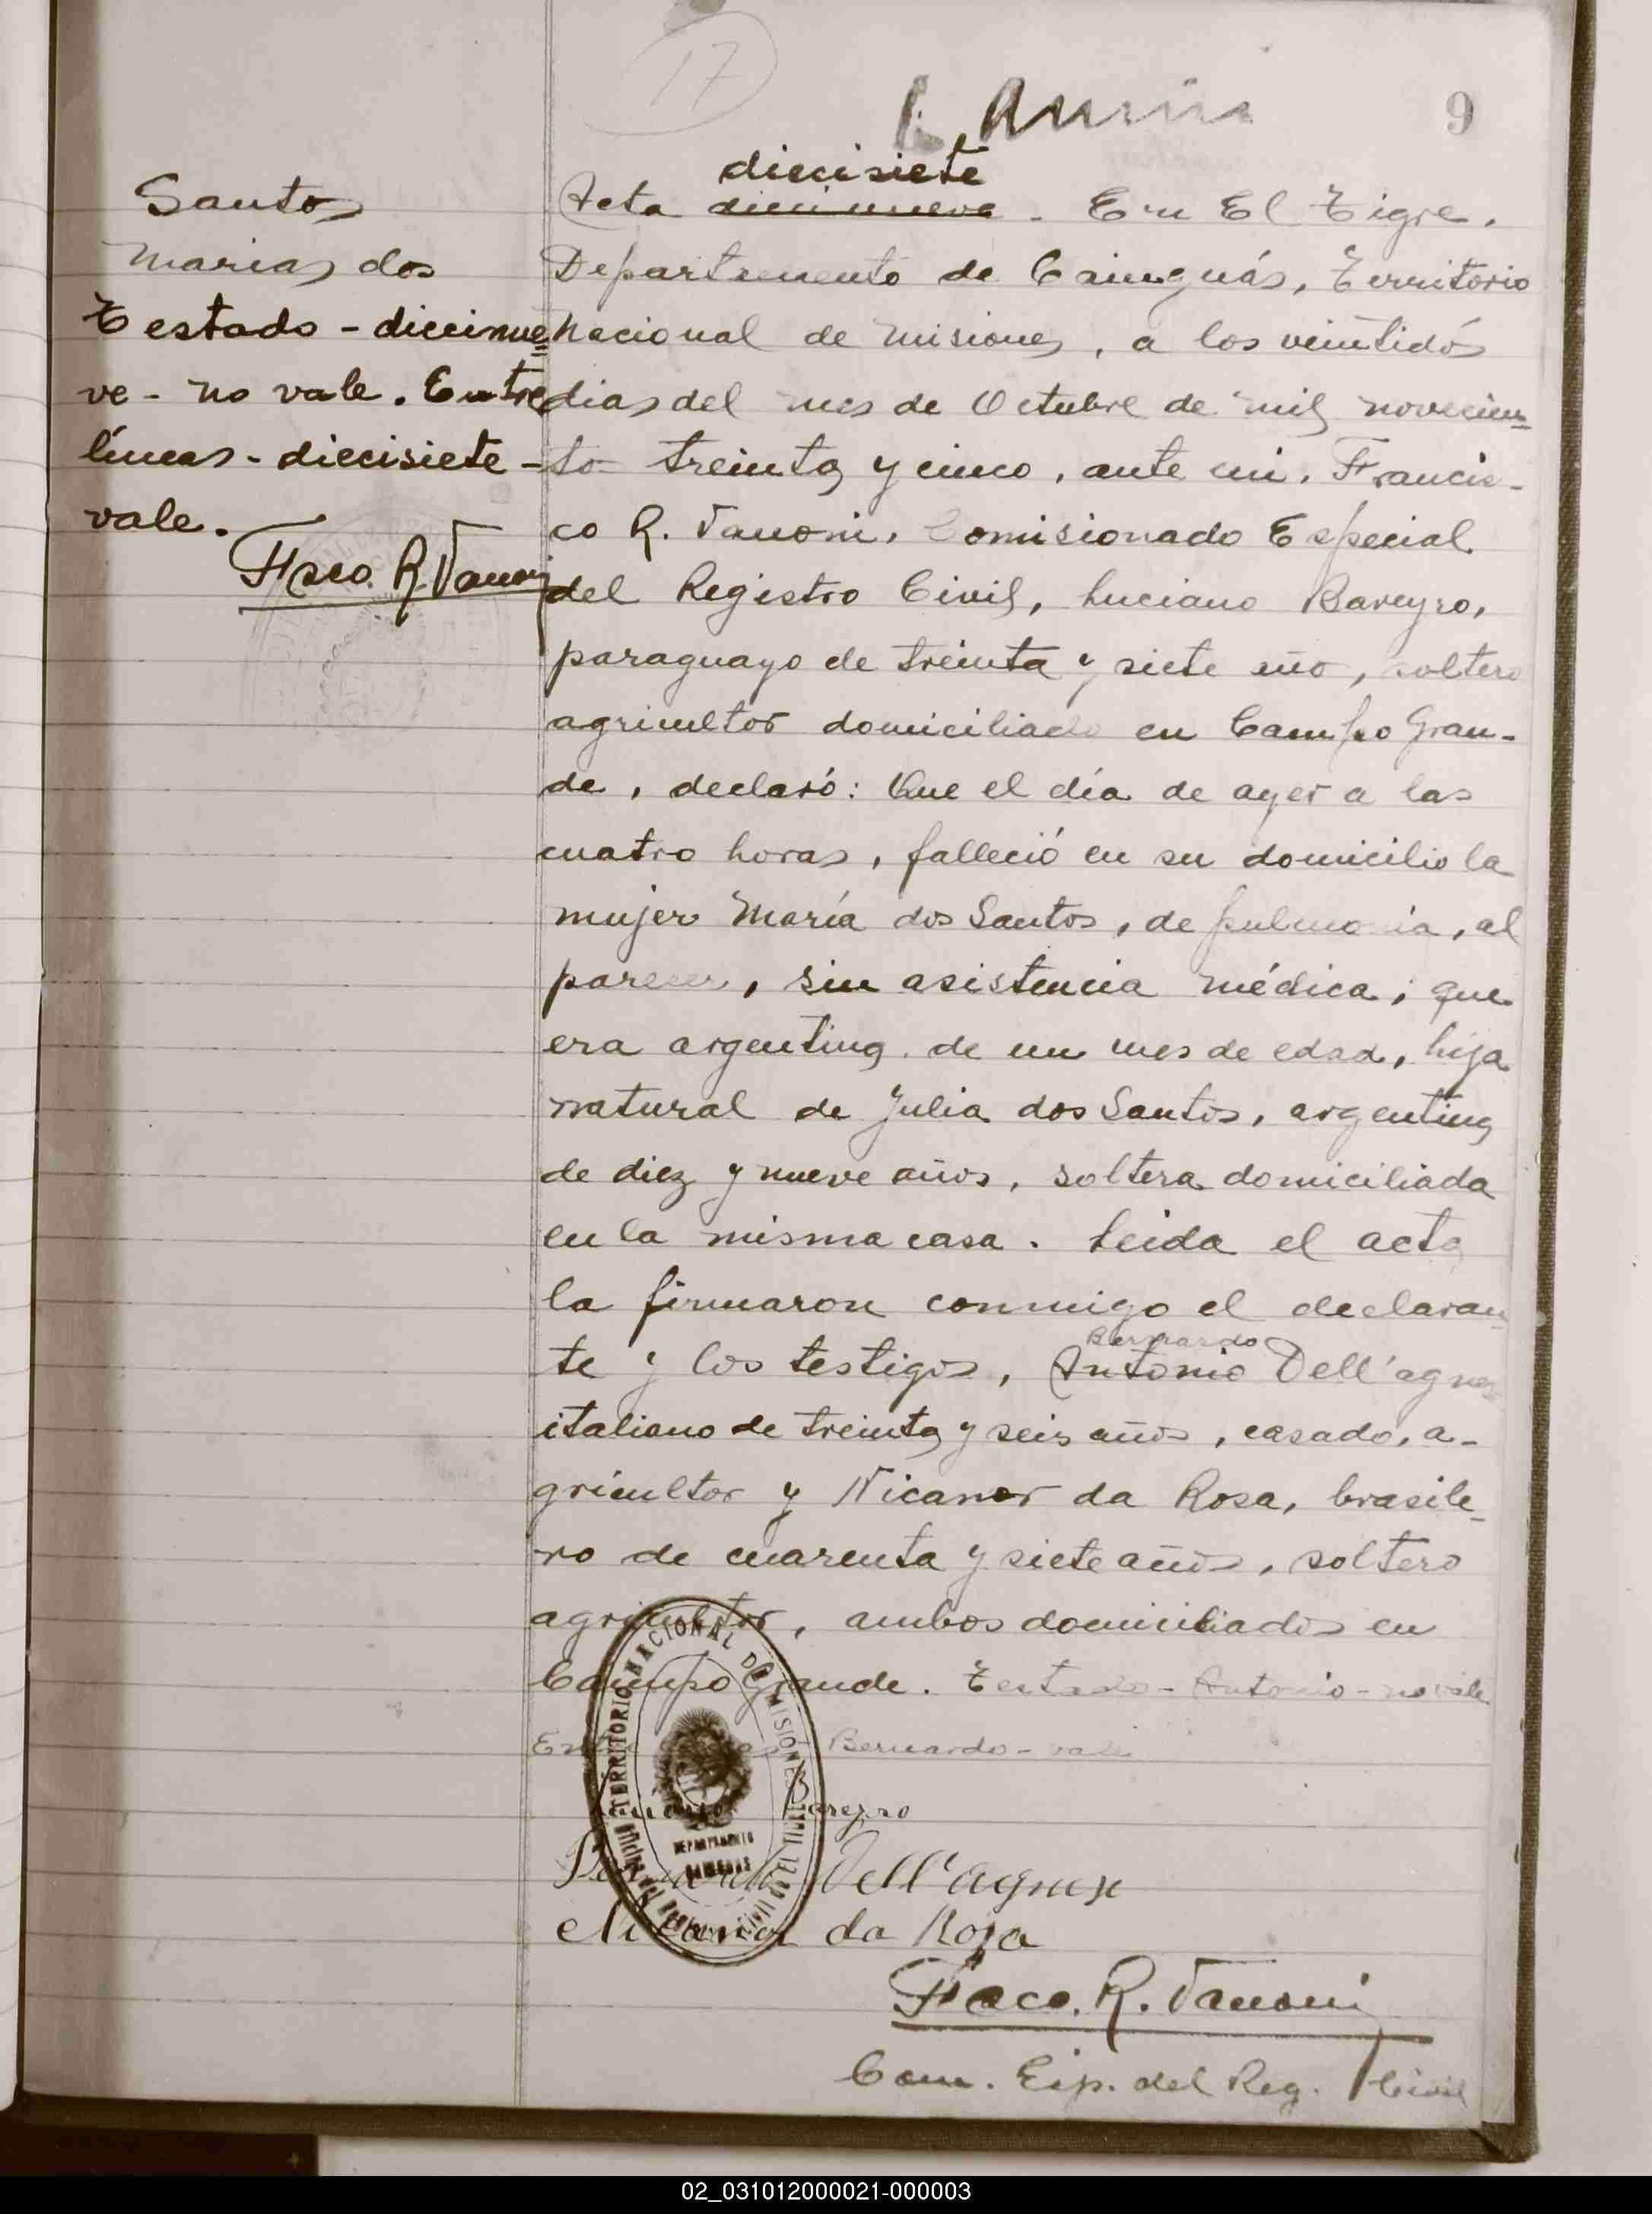 17
9
Santos
Maria dos
Testado - diecinue
ve - no vale. Entre
líneas - diecisiete -
vale.
Fsco. R. Vanoni
diecisiete
Acta diecinueve - En El Tigre,
Departamento de Cainguás, Territorio
Nacional de Misiones, a los veintidós
dias del mes de Octubre de mil novecien
to treinta y cinco, ante mi, Francis-
co R. Vanoni, Comisionado Especial
del Registro Civil, Luciano Bareyro,
paraguayo de treinta y siete año, soltero
agricultor domiciliado en Campo Gran-
de, declaró: Que el día de ayer a las
cuatro horas, falleció en su domicilio la
mujer María dos Santos, de pulmonia, al
parecer, sin asistencia médica; que
era argentina, de un mes de edad, hija
natural de Julia dos Santos, argentina
de diez y nueve años, soltera domiciliada
en la misma casa. Leida el acta
la firmaron conmigo el declaran
Bernardo
te y los testigos, Antonio Dell'agnese
italiano de treinta y seis años, casado, a-
gricultor y Nicanor da Rosa, brasile-
ro de cuarenta y siete años, soltero
agricultor, ambos domiciliados en
Campo Grande. Testado - Antonio - no vale
Bernardo - vale
Bareyro
Dell'agnese
Nicanor da Rosa
TERRITORIO NACIONAL DE MISIONES
DEPARTAMENTO
CAINGUAS
Fsco. R. Vanoni
Com. Esp. del Reg. Civil
02_031012000021-000003